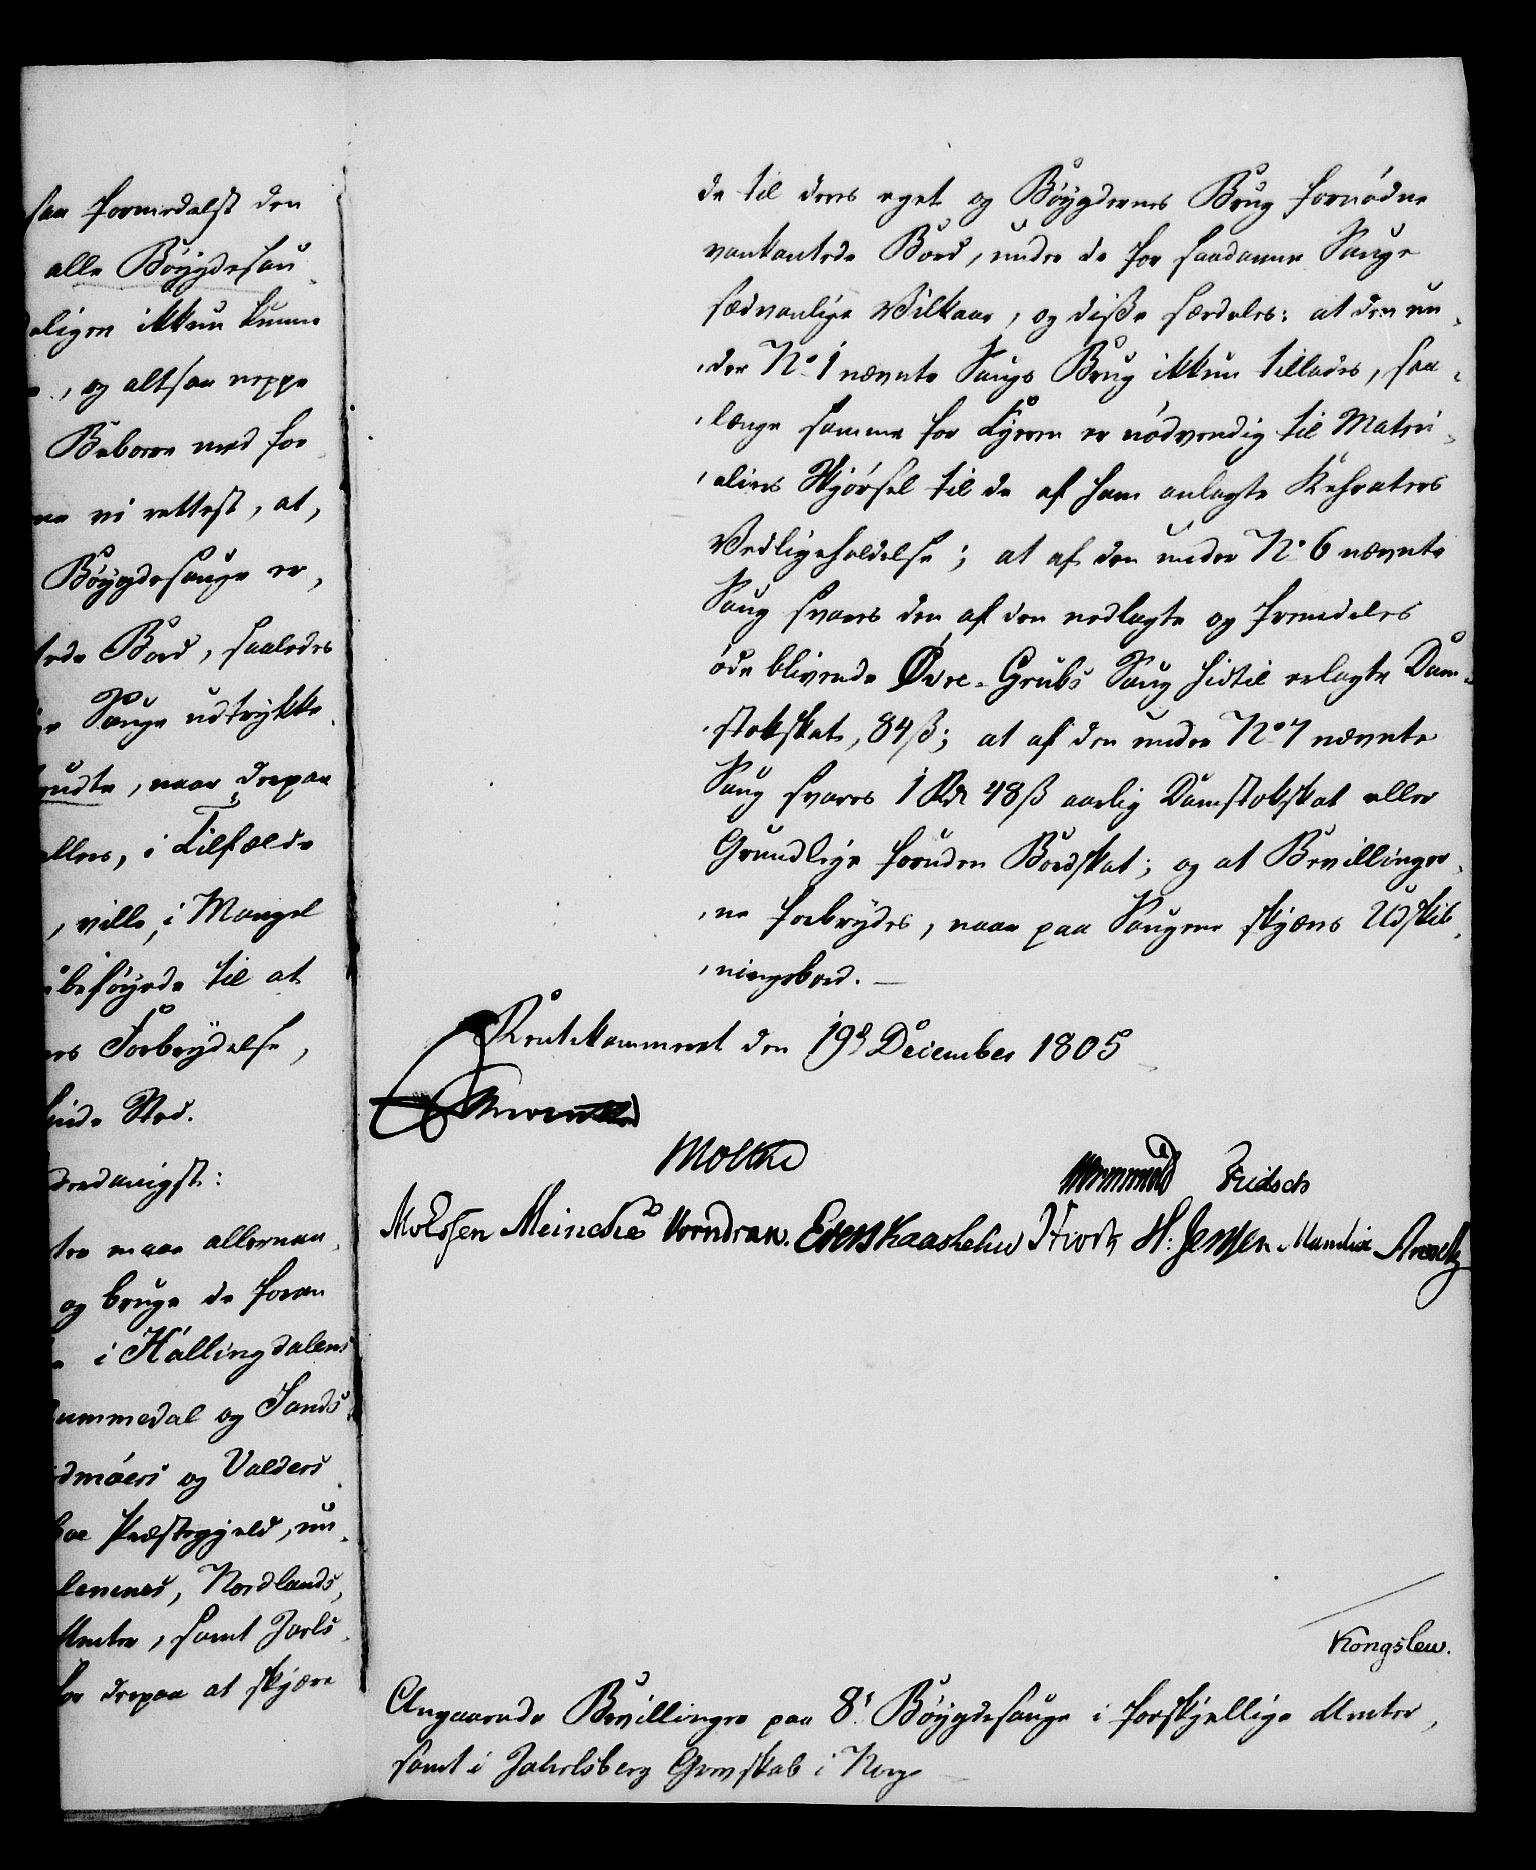 saa formedelst den
alle Bøygdesau
eligen ikkun kunne
, og altsaa neppe
Beboere med for
vi rettest, at,
Bøygdesauge er,
Bord, saaledes
Sauge udtrykke
, naar derpaa
ellers, i Tilfælde
, ville, i Mangel
beføyede til at
Forbrydelse,
Sted.
maae allernaa
og bruge de foran
i Hallingdalens
ummedal og Sands
dmøers og Valders
Præstegjeld, un
Nordlands
Amter, samt Jarls
derpaa at skjære
de til deres eget og Bøygdernes Brug fornødne
vankantede Bord, under de for saadanne Sauge
sædvanlige Vilkaar, og disse særdeles: at den un-
der No 1 nævnte Saugs Brug ikkun tillades, saa-
længe samme for Eyeren er nødvendig til Materi-
aliers Skjørsel til de af ham anlagte Kehraters
Vedligeholdelse; at af den under No 6 nævnte
Saug svares den af den nedlagte og fremdeles
øde blivende Øvre-Grubs Saug hidtil erlagte Dam-
stokskat, 84 ß; at af den under No 7 nævnte
Saug svares 1 Rdr 48 ß aarlig Damstokskat eller
Grundleje foruden Bordskat; og at Bevillinger-
ne forbrydes, naar paa Saugene skjæres Udskib-
ningsbord. —
Rentekammeret den 19d December 1805
Moltke
Wormskiold Fridsch
Meincke Vorndran. Evers Knashelm H: Jensen Mandix
Kongslew.
Angaaende Bevillinger paa 8t Bøygdesauge i forskjellige Amter,
samt i Jahrlsberg Grevskab i Norge